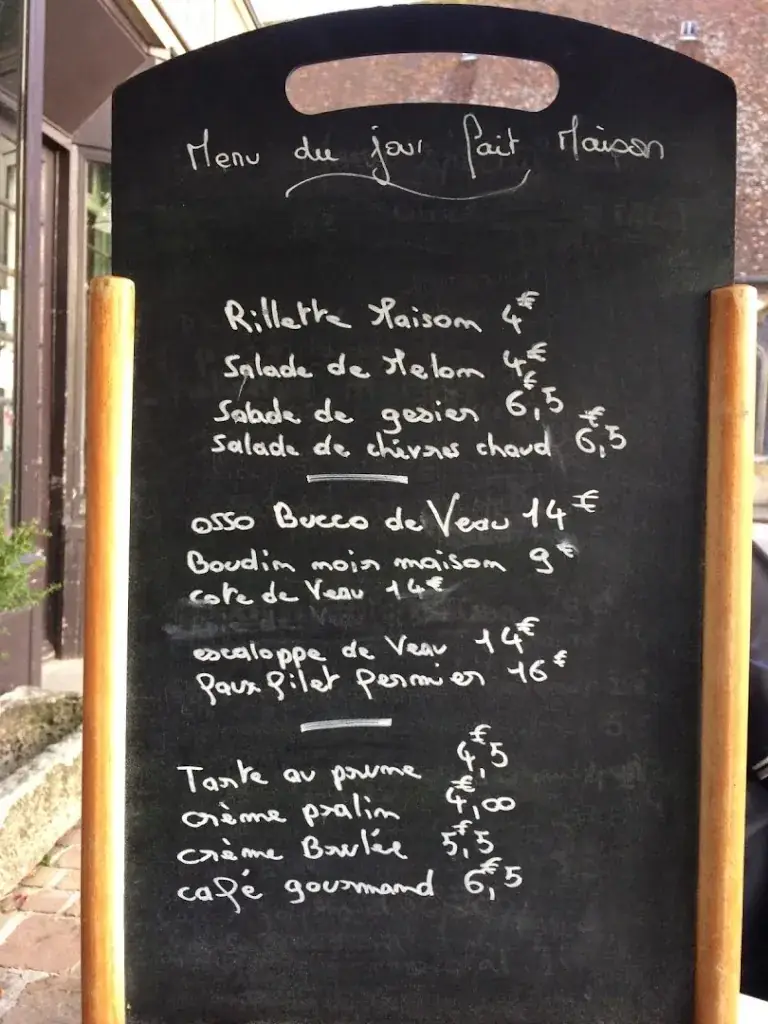 Menu du jour fait Maison
Rillette Maison 4€
Salade de Melon 4€
Salade de gesier 6,5€
Salade de chèvres chaud 6,5€
osso Bucco de Veau 14€
Boudin noir maison 9€
cote de Veau 14€
escaloppe de Veau 14€
faux filet fermier 16€
Tarte au prume 4,5€
crème pralin 4,00€
crème Brulée 5,5€
café gourmand 6,5€